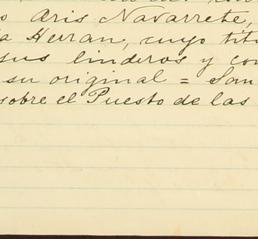 o Aris Navarrete,
a Herran, cuyo títu
sus linderos y con
su original = San
sobre el Puesto de las